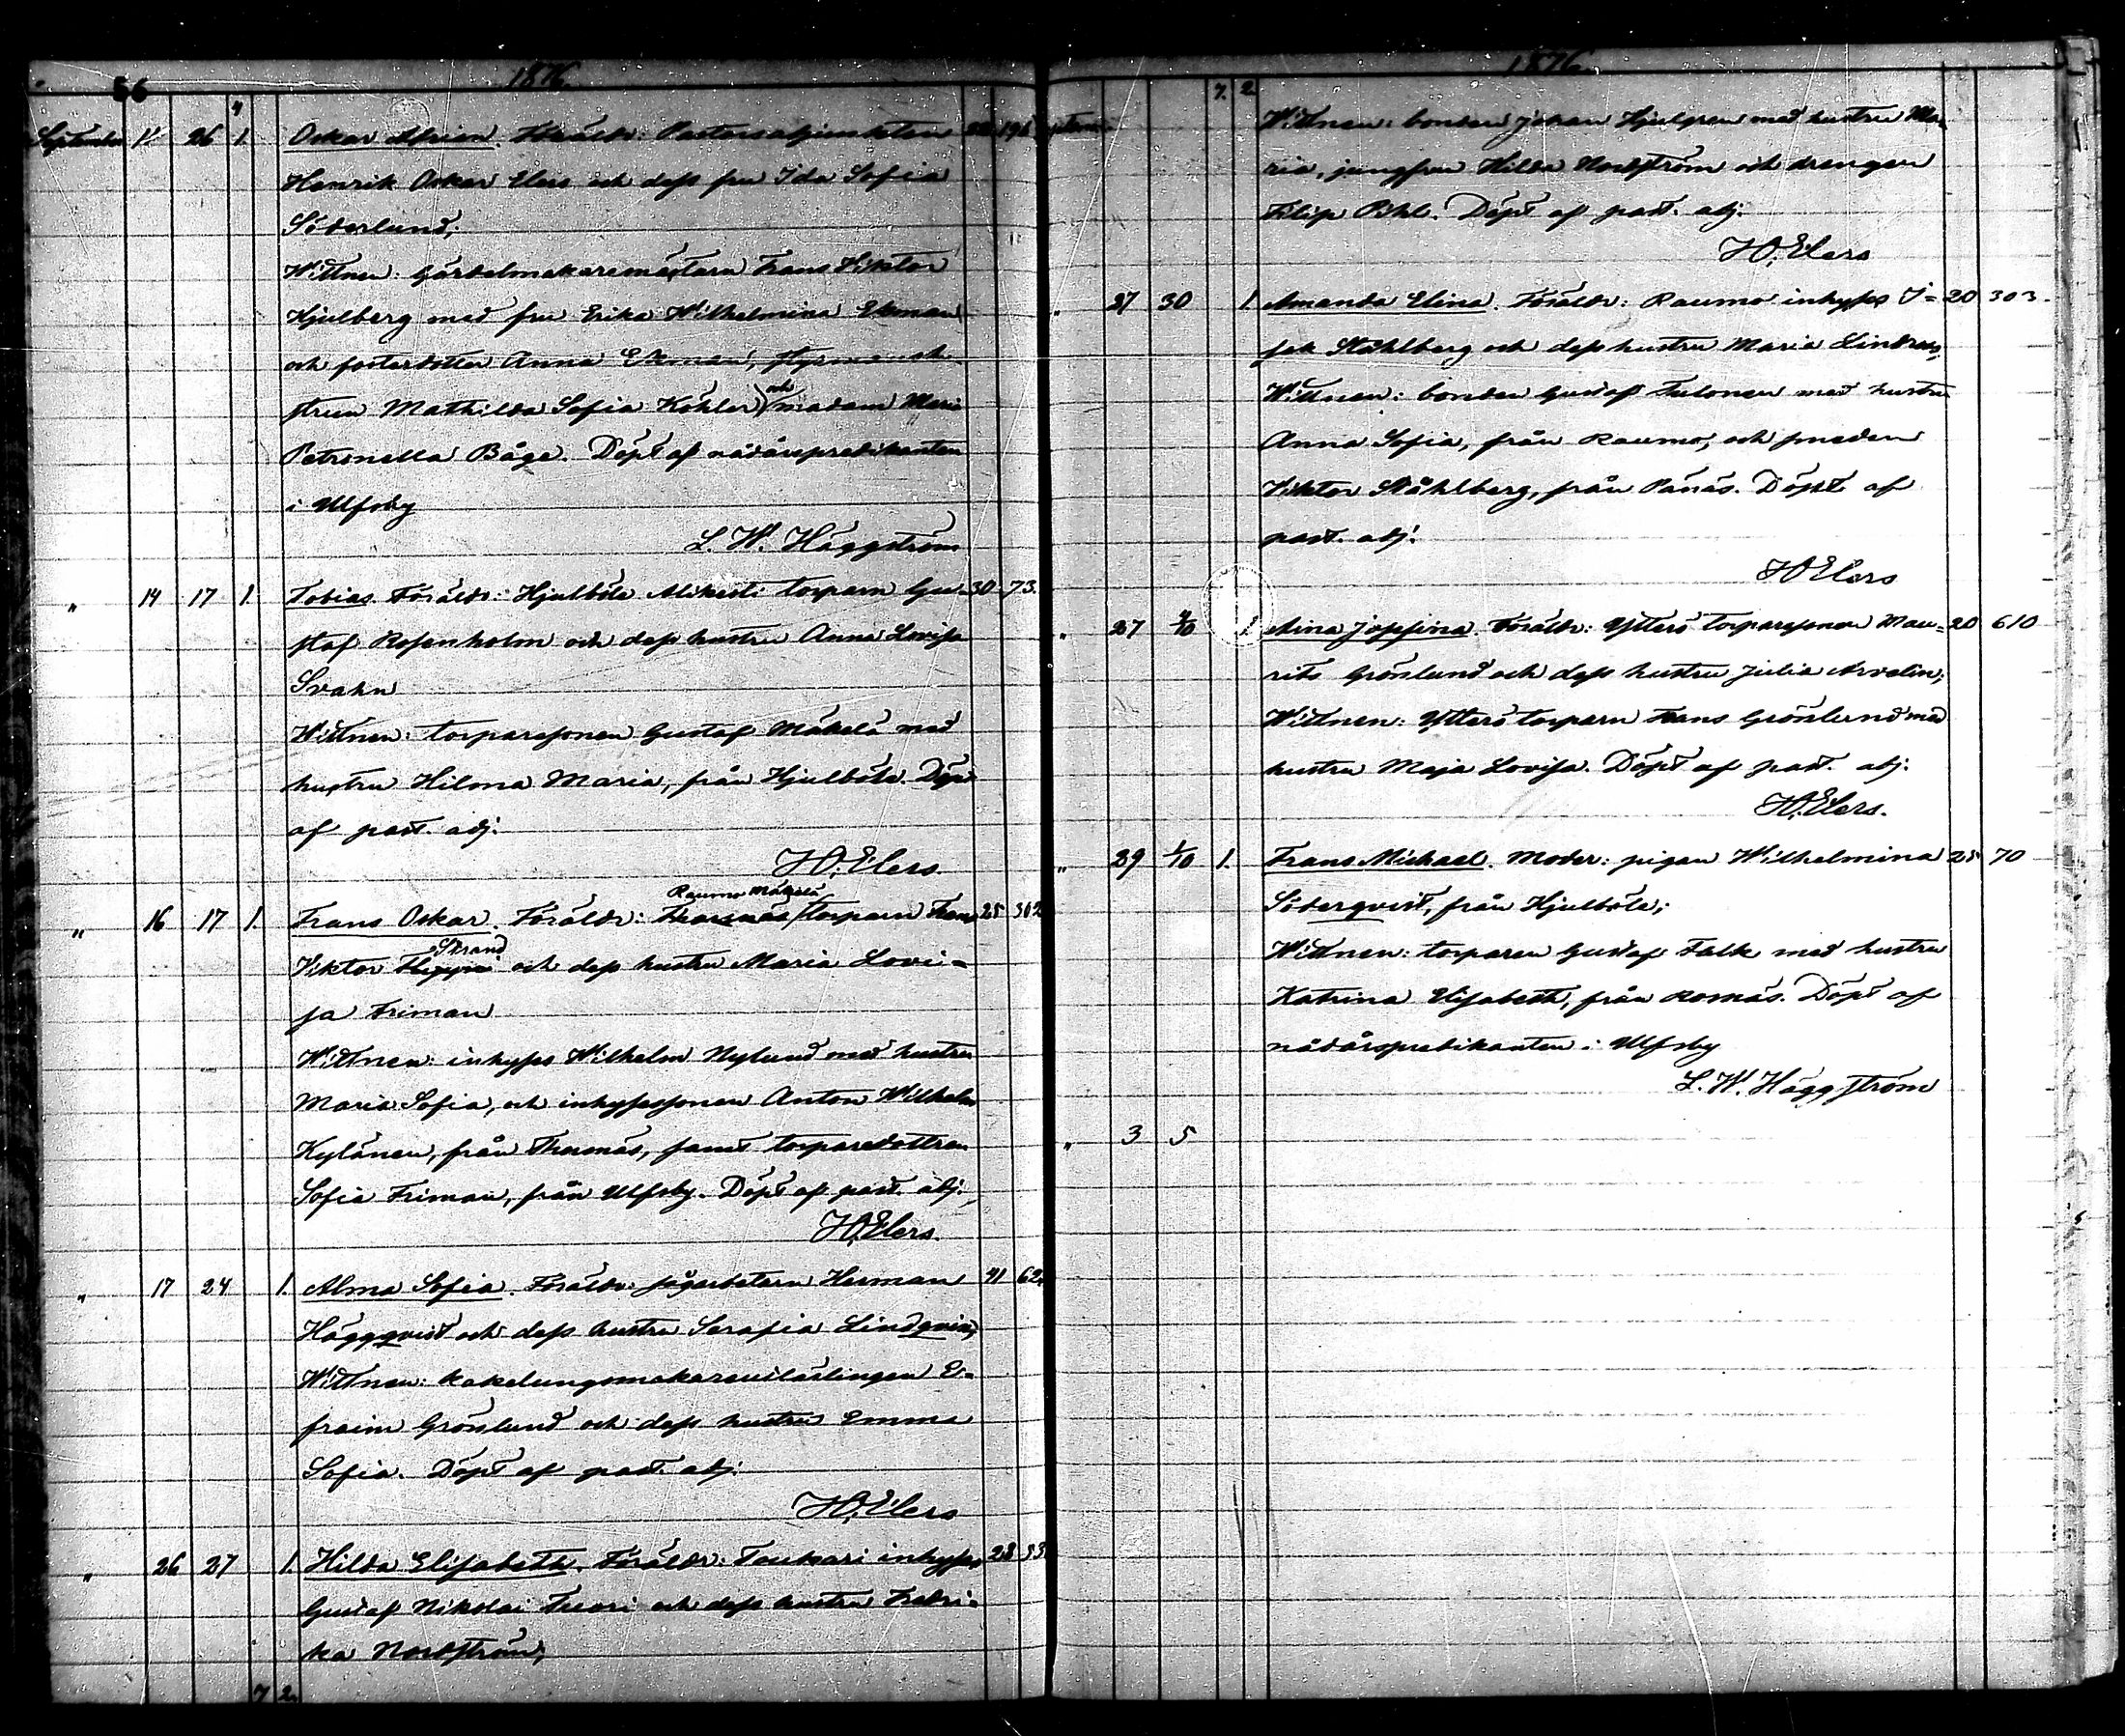 56 1876.
4
September 11 26 1. Oskar Adrian. Föräldr: Pastorsadjunkten 22 196
Henrik Oskar Elers och dess fru Ida Sofia
Söderlund;
Wittnen: Gördelmakaremästaren Frans Viktor
Hjulberg med fru Erika Wilhelmina Ekman
och fosterdotter Anna Ekman,
Mathilda Sofia Köhler och madam Maria
Petronella Båge. Döpt af nådårspredikanten
i Ulfsby
L. W. Häggström
" 14 17 1. Tobias. Föräldr: Hjulböle torparn Gu- 30 73.
staf Rosenholm och dess hustru Anna Lovisa
Svahn
Wittnen: torparesonen Gustaf Mäkelä med
hustru Hilma Maria, från Hjulböle. Döpt
af past. adj.
H.O. Elers.
Raumo Mäkelä
" 16 17 1. Frans Oskar. Föräldr: torparn Frans 25 302
Strand
Viktor och dess hustru Maria Lovi=
sa Friman
Wittnen: inhyses Wilhelm Nylund med hustru
Maria Sofia, och inhysessonen Anton Wilhelm
Kylänen, från Thorsnäs, samt torparedottren
Sofia Friman, från Ulfsby. Döpt af past. adj.
H.O. Elers.
" 17 24 1. Alma Sofia. Föräldr: sågarbetaren Herman 41 62
Häggqvist och dess hustru Serafia Lindqvist;
Wittnen: kakelungsmakareutläslingen E-
fraim Grönlund och dess hustru Emma
Sofia. Döpt af past. adj.
H.O. Elers
" 26 27 1. Hilda Elisabeth. Föräldr: Toukari inhyses 28 33
Gustaf Nikolai och dess hustru Fredri-
ka Nordström;
7 2.
1876.
7. 2
Wittnen: bonden Johan Hjulgren med hustru Ma-
ria, jungfrun Hilda Nordström och drengen
Filip Pihl. Döpt af past. adj.
H.O. Elers
" 27 30 1. Amanda Elina. Föräldr: Raumo inhyses I= 20 303.
sak Ståhlberg och dess hustru Maria
Wittnen: bonden Gustaf Tulonen med hustru
Anna Sofia, från Raumo, och smeden
Viktor Ståhlberg, från Panäs. Döpt af
past. adj.
H.O. Elers
" 27 4/10 1. Aina Josefina. Föräldr: Ytterö torparesonen Mau= 20 610
rits Grönlund och dess hustru Julia Arvelin;
Wittnen: Ytterö torparn Frans Grönlund med
hustru Maja Lovisa. Döpt af past. adj.
H.O. Elers.
" 29 1/10 1. Frans Michael. Moder: pigan Wilhelmina 25 70
Söderqvist, från Hjulböle;
Wittnen: torparen Gustaf Falk med hustru
Katrina Elisabeth, från Rosnäs. Döpt af
nådårspredikanten i Ulfsby
L. W. Häggström
" 3 5